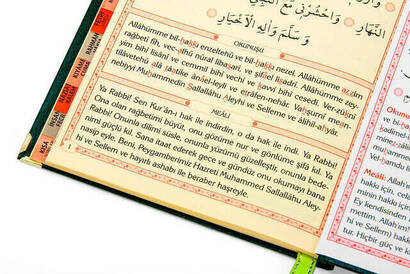 النَّهَارِ وَاحْشُرْنِي مَعَ النَّبِيِّ
وَسَلَّمَ وَآلِهِ الْاَخْيَارِ
OKUNUŞU
Allâhümme bil-hakkı enzeltehû ve bil-hakkı nezel. Allâhümme azzım
rağbetî fîh, vec-alhü nûral libasarî, ve şifâel lisadrî. Allâhümme zey-
yim bihî lisânî ve cemmil bihî vechî ve kavvi bihî cesedî. Ver-züknî
tilâvetehû alâ tâatike ânâel-leyli ve etrâfen-nehâr. Vahşurnî mean-
nebiyyi Muhammedin Sallallâhü Aleyhi ve Selleme ve âlihil-ahyâr.
MEÂLİ
Ya Rabbi! Sen Kur'ân-ı hak ile indirdin, o da hak ile indi. Ya Rabbi!
Ona olan rağbetimi büyüt, onu gözüme nur ve gönlüme şifâ kıl. Ya
Rabbi! Onunla dilimi süsle, onunla yüzümü güzelleştir, onunla bede-
nimi güçlü kıl. Sana itaat ederek gece ve gündüz onu okumayı bana
nasip eyle. Beni, Peygamberimiz Hazreti Muhammed Sallallâhü Aley-
hi ve Sellem ve hayırlı ashabı ile beraber haşreyle.
RAHMAN
CUMA
KIYAME
NEBE
FECR
Okunu
Meâli:
hakkı için,
hakkı için
Ey kendisinden
mettim. Allah'ım!
hi ve Sellem)
tur. Hiçbir güç ve k